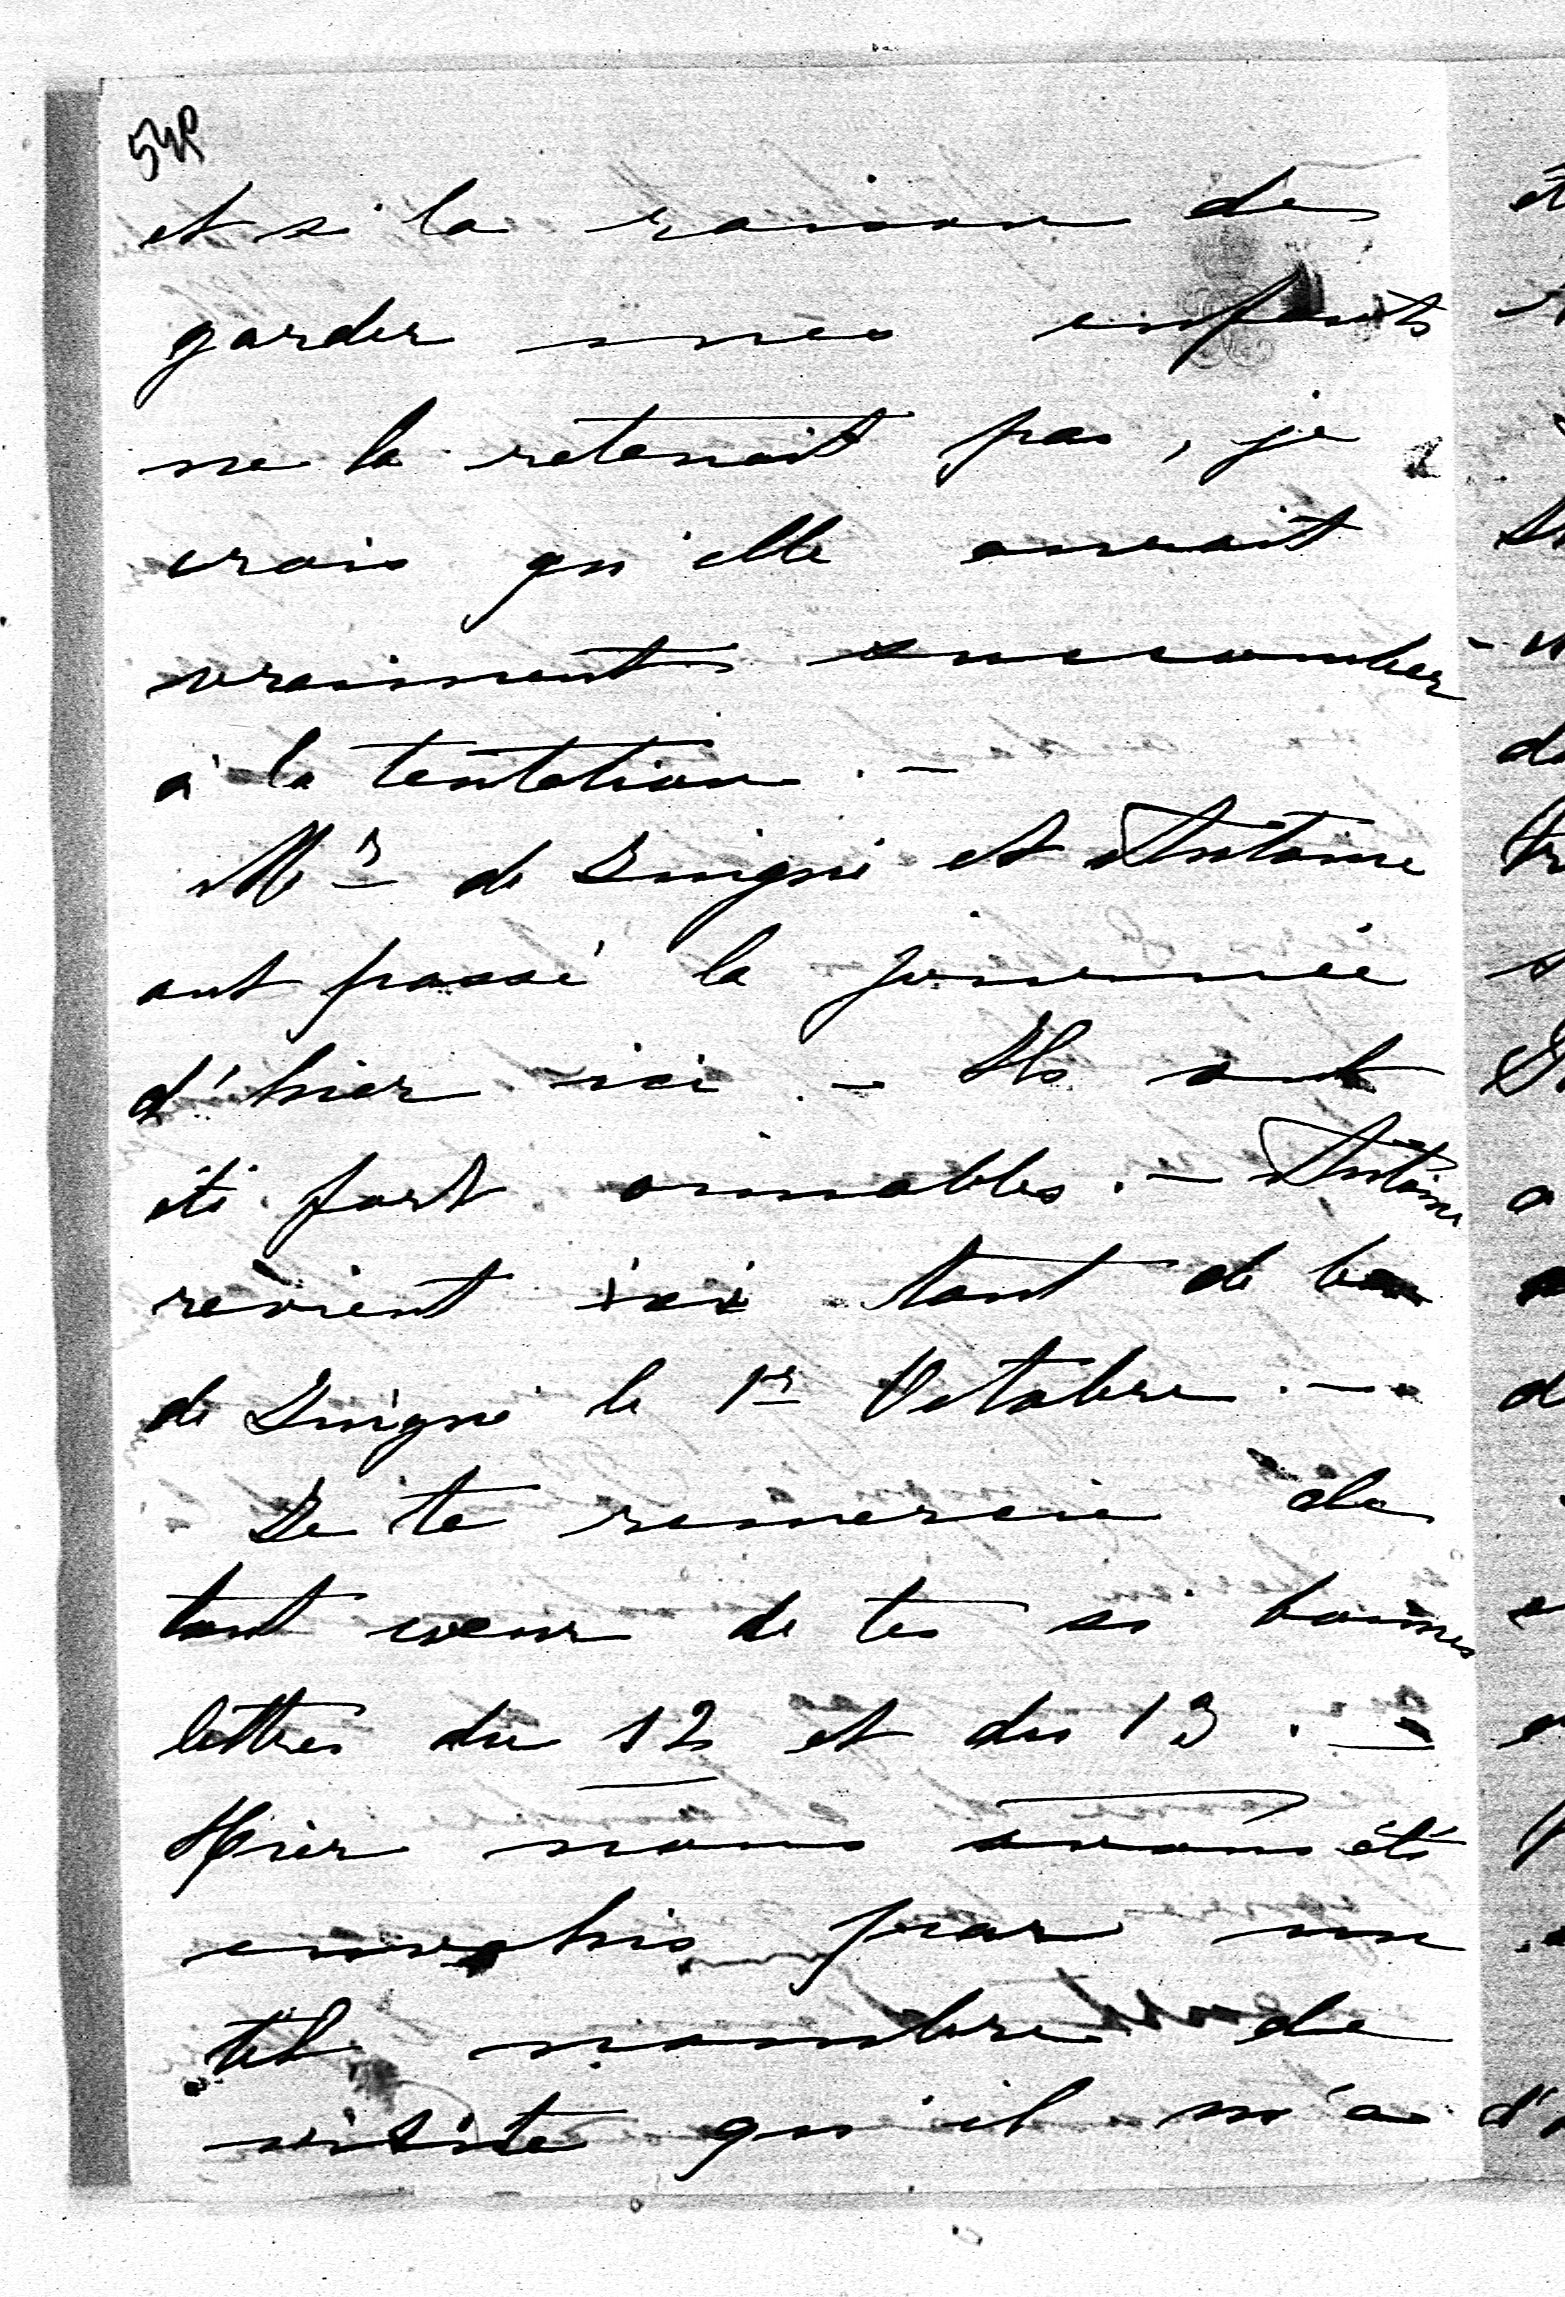 et si la raison de
garder mes enfants
ne la retenait pas, je
crois qu'elle aurait
vraiment succomber
à la tentation. -
Mr de et Antoine
ont passé la journée
d'hier ici. - Ils ont
été fort aimables. - Antoine
revient ici tant de
de le 1er Octobre. -
Je te remercie de
tout coeur de tes si bonnes
lettres du 12 et du 13. -
Hier nous avons été
envahis par un
tel nombre de
visite qu'il m'a